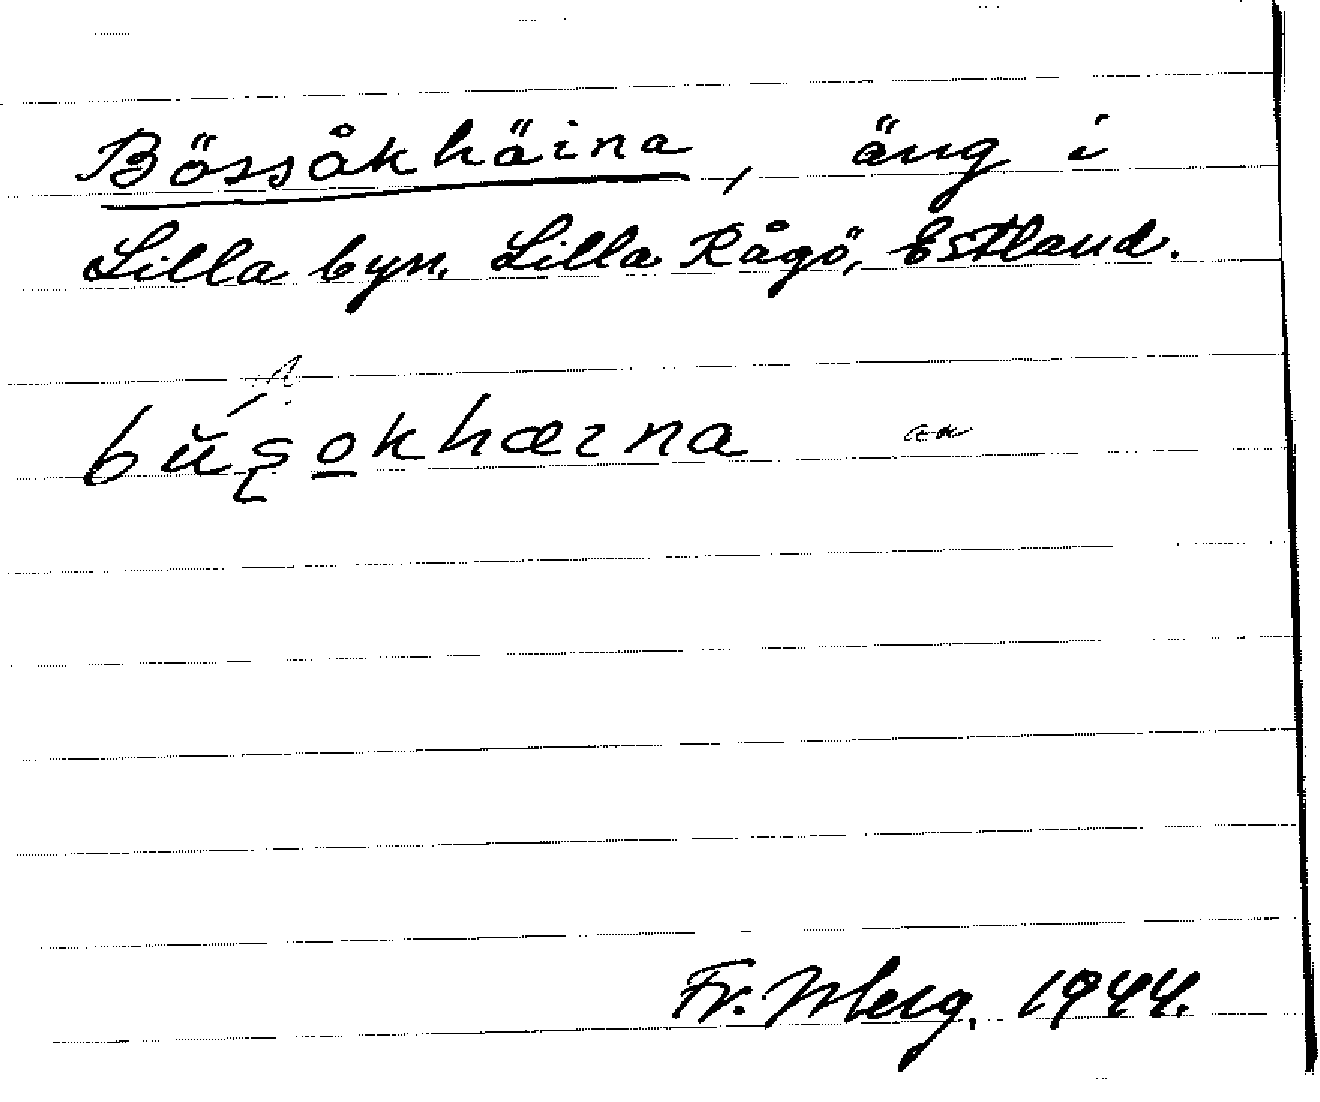 Bössåkhäina, äng i
Lilla byn. Lilla Rågö, Estland.
bŭs̨o̲khæɪna
Fr. 1944.